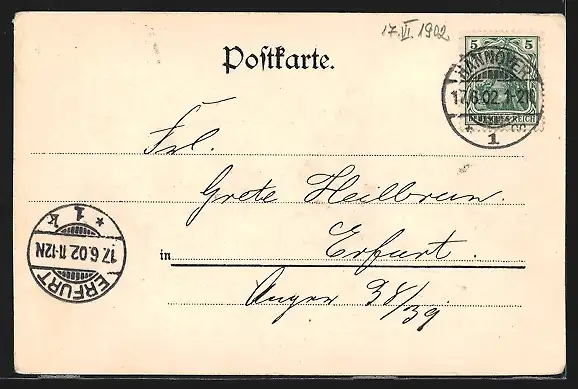 17.VI.1902
Postkarte.
5 5
DEUTSCHES REICH
HANNOVER
17.6.02.1-2N
* 1
Frl.
Grete Heilbrun
in Erfurt.
Anger 38/39
* 1 k
17.6.02.11-12N
ERFURT